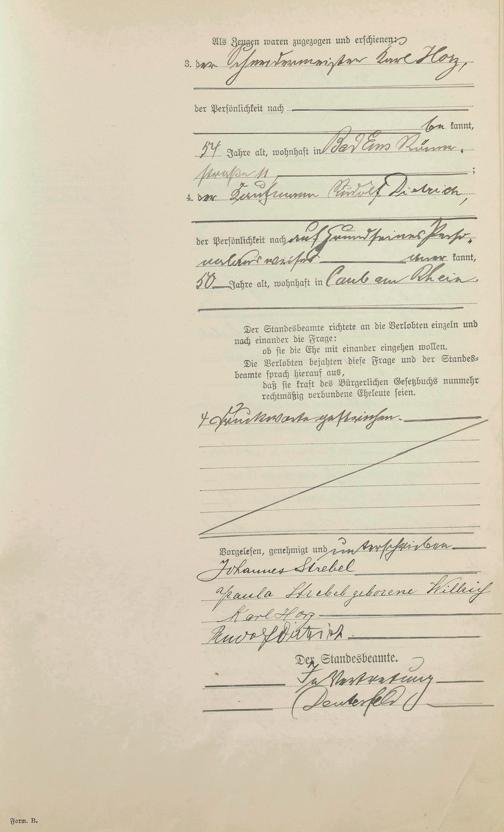 Als Zeugen waren zugezogen und erschienen:
3. der Schneidermeister Karl Horz,
der Persönlichkeit nach
be kannt,
54 Jahre alt, wohnhaft in Bad Ems Römer-
straße 11 ;
4. der Kaufmann Rudolf Dietrich,
der Persönlichkeit nach auf Grund seines Perso-
nalausweises kannt,
50 Jahre alt, wohnhaft in Caub am Rhein.
Der Standesbeamte richtete an die Verlobten einzeln und
nach einander die Frage:
ob sie die Ehe mit einander eingehen wollen.
Die Verlobten bejahten diese Frage und der Standes-
beamte sprach hierauf aus,
daß sie kraft des Bürgerlichen Gesetzbuchs nunmehr
rechtmäßig verbundene Eheleute seien.
4 Druckworte gestrichen.
Vorgelesen, genehmigt und unterschrieben
Johannes Strebel
Paula Strebel geborene Willrich
Karl Horz
Rudolf Dietrich
Der Standesbeamte.
In Vertretung
Form. B.